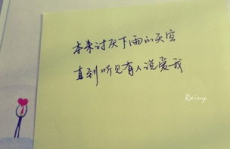 本来讨厌下雨的天空
直到听见有人说爱我
Rainy.